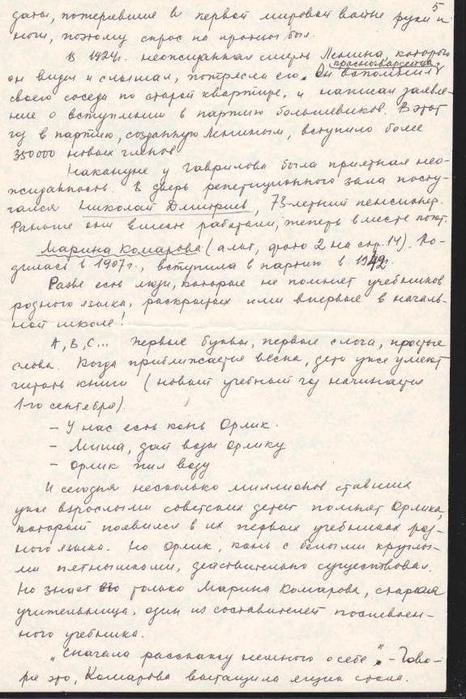 5
даты, потерявшие в первой мировой войне руки и
ноги, поэтому спрос на протезы был.
В 1924г. неожиданная смерть Ленина, которого
он видел и слышал, потрясла его. Он вспомнил
своего соседа по старой квартире, и написал заявле-
ние о вступлении в партию большевиков. В этот
год в партию, созданную Лениным, вступило более
350000 новых членов
Накануне у Гаврилова была приятная нео-
жиданность. В дверь репетиционного зала посту-
чался Николай Дмитриев, 73-летний пенсионер.
Раньше они вместе работали, теперь вместе поют.
Марина Комарова (альт, фото 2 на стр. 14). Ро-
дилась в 1907г., вступила в партию в 1942г.
Разве есть люди, которые не помнят учебников
родного языка, раскрытых ими впервые в началь-
ной школе!
А, В, С... Первые буквы, первые слога, простые
слова. Когда приближается весна, дети уже умеют
читать книги (новый учебный год начинается
1-го сентября).
- У нас есть конь Орлик.
- Миша, дай воды Орлику
- Орлик пил воду
И сегодня несколько миллионов ставших
уже взрослыми советских детей помнят Орлика,
который появился в их первых учебниках род-
ного языка. Но Орлик, конь с белыми круглы-
ми пятнышками, действительно существовал.
Но знает его только Марина Комарова, старая
учительница, один из составителей послевоен-
ного учебника.
"Сначала расскажу немного о себе." - Гово-
ря это, Комарова вытащила ящик стола.